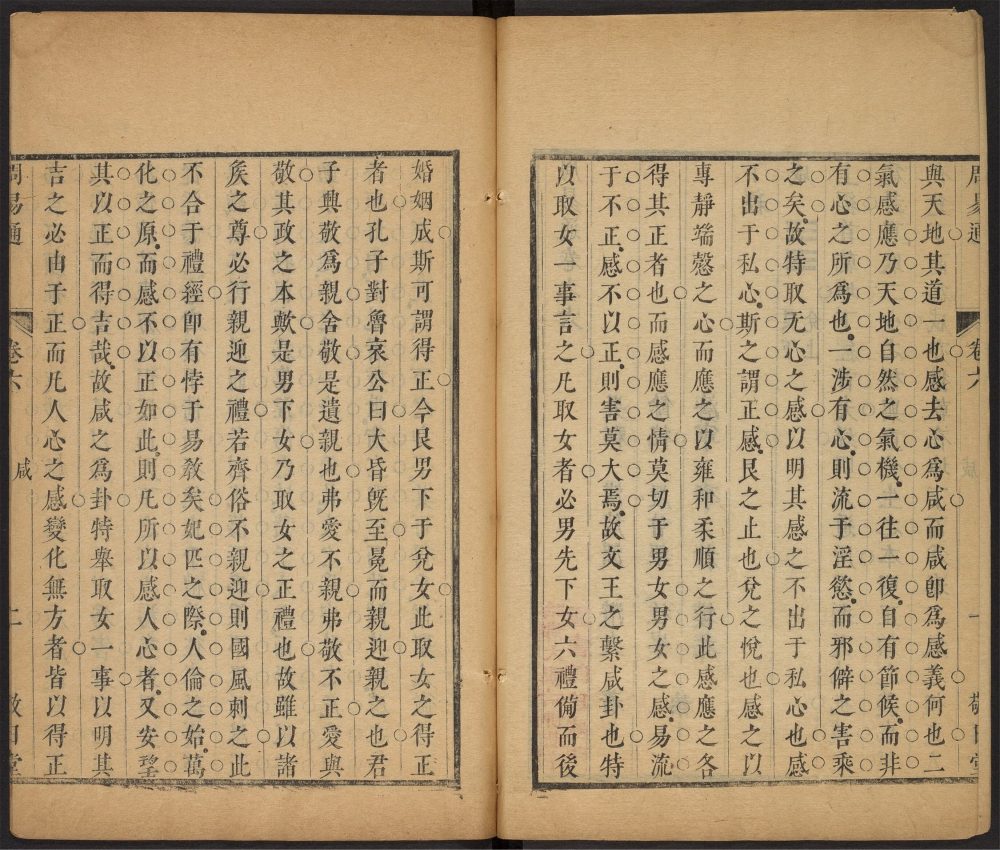 周易通
卷六
咸
一
敬日堂
與天地其道一也感去心爲咸而咸卽爲感義何也二
氣感應乃天地自然之氣機一往一復自有節候而非
有心之所爲也一涉有心則流于淫慾而邪僻之害乘
之矣故特取无心之感以明其感之不出于私心也感
不出于私心斯之謂正感艮之止也兌之悅也感之以
專靜端慤之心而應之以雍和柔順之行此感應之各
得其正者也而感應之情莫切于男女男女之感易流
于不正感不以正則害莫大焉故文王之繫咸卦也特
以取女一事言之凡取女者必男先下女六禮備而後
婚姻成斯可謂得正今艮男下于兌女此取女之得正
者也孔子對魯哀公曰大昏旣至冕而親迎親之也君
子興敬爲親舍敬是遺親也弗愛不親弗敬不正愛與
敬其政之本歟是男下女乃取女之正禮也故雖以諸
矦之尊必行親迎之禮若齊俗不親迎則國風刺之此
不合于禮經卽有悖于易敎矣妃匹之際人倫之始萬
化之原而感不以正如此則凡所以感人心者又安望
其以正而得吉哉故咸之爲卦特舉取女一事以明其
吉之必由于正而凡人心之感變化無方者皆以得正
周易通
卷六
咸
二
敬日堂